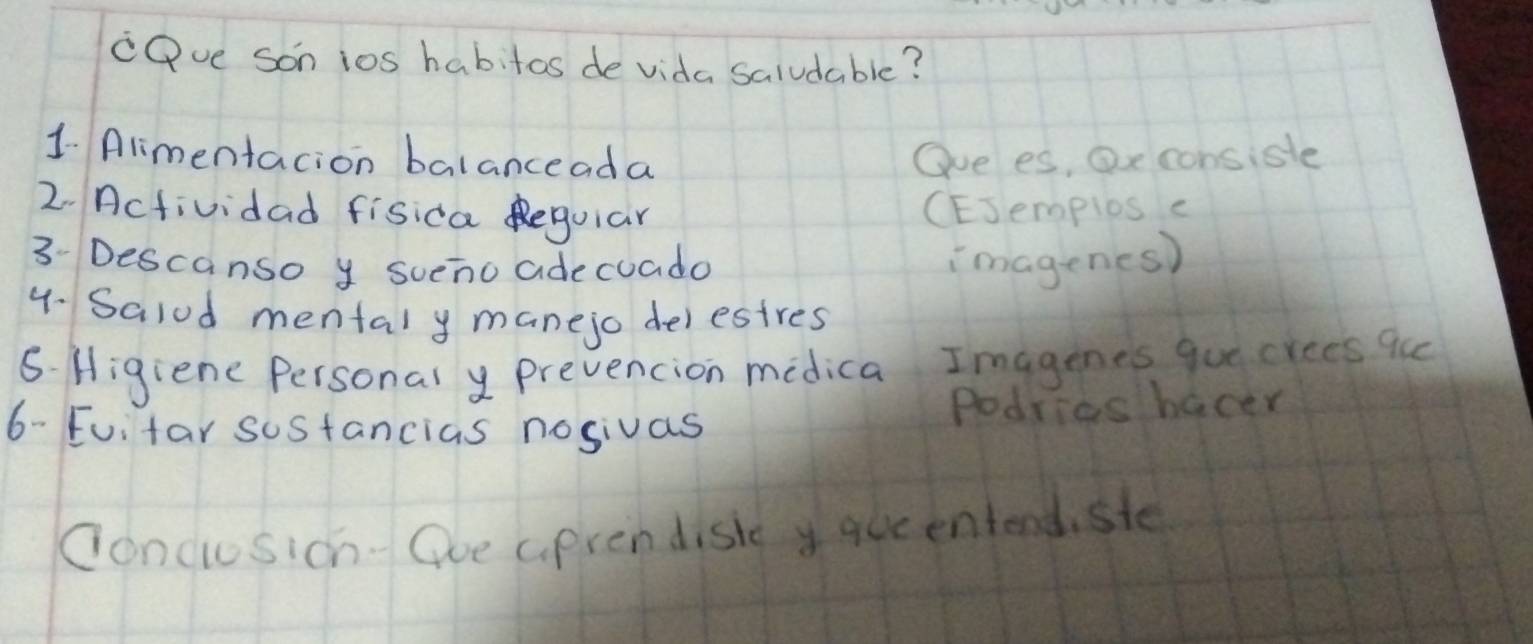 ¿Que són los habitos de vida saludable?
1- Alimentación balanceada
2- Actividad física Regular
3- Descanso y sueño adecuado
4- Salud mental y manejo del estres
5- Higiene Personal y prevención médica
6- Evitar sustancias nosivas
Que es, Que consiste
(EJemplos e
imagenes)
Imagenes que crees que
Podrias hacer
Conclusión- Que aprendiste y que entendiste